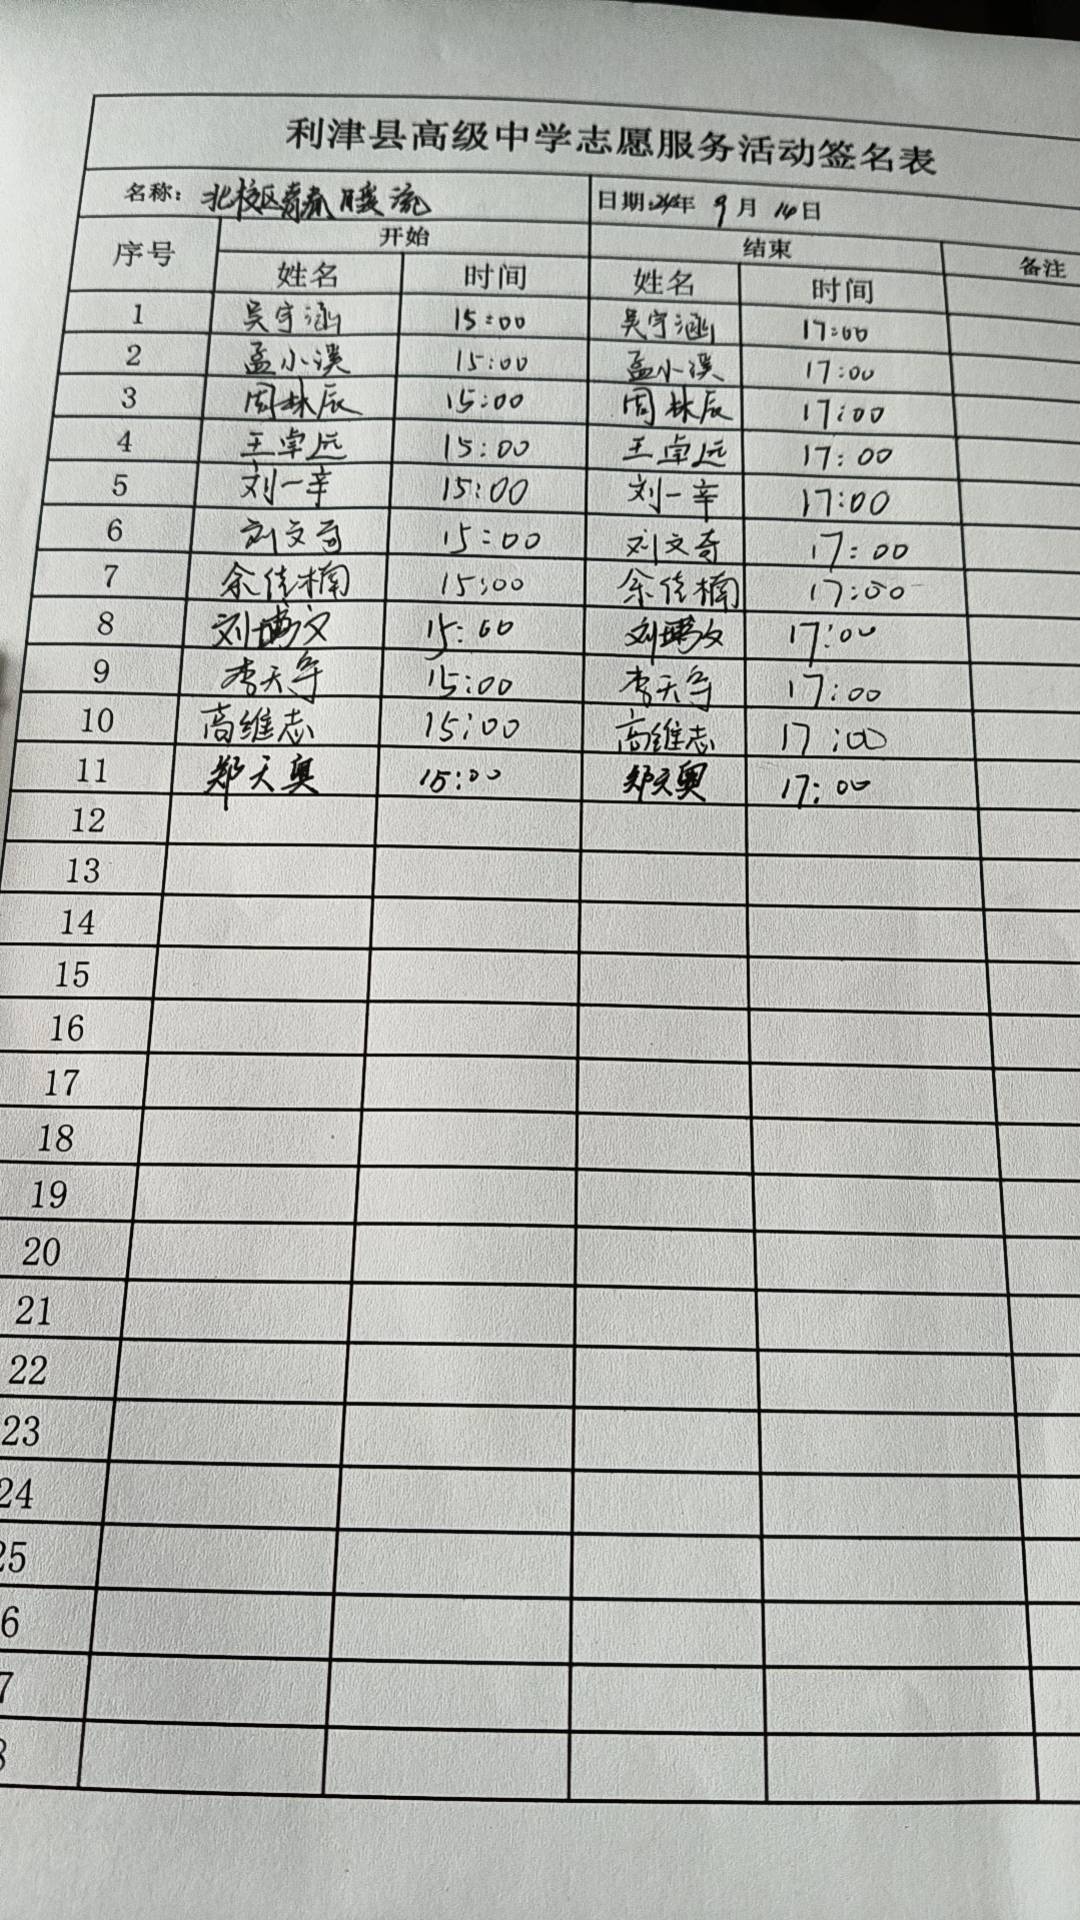 利津县高级中学志愿服务活动签名表
名称: 北校区青春暖流 日期: 年 9月14日
序号 开始 结束 备注
姓名 时间 姓名 时间
1 吴宇涵 15:00 吴宇涵 17:00
2 孟小溪 15:00 孟小溪 17:00
3 周林辰 15:00 周林辰 17:00
4 王卓远 15:00 王卓远 17:00
5 刘一辛 15:00 刘一辛 17:00
6 刘文奇 15:00 刘文奇 17:00
7 余佳楠 15:00 余佳楠 17:00
8 刘博文 15:00 刘博文 17:00
9 李天宇 15:00 李天宇 17:00
10 高维志 15:00 高维志 17:00
11 郑天奥 15:00 郑天奥 17:00
12
13
14
15
16
17
18
19
20
21
22
23
24
25
6
7
8